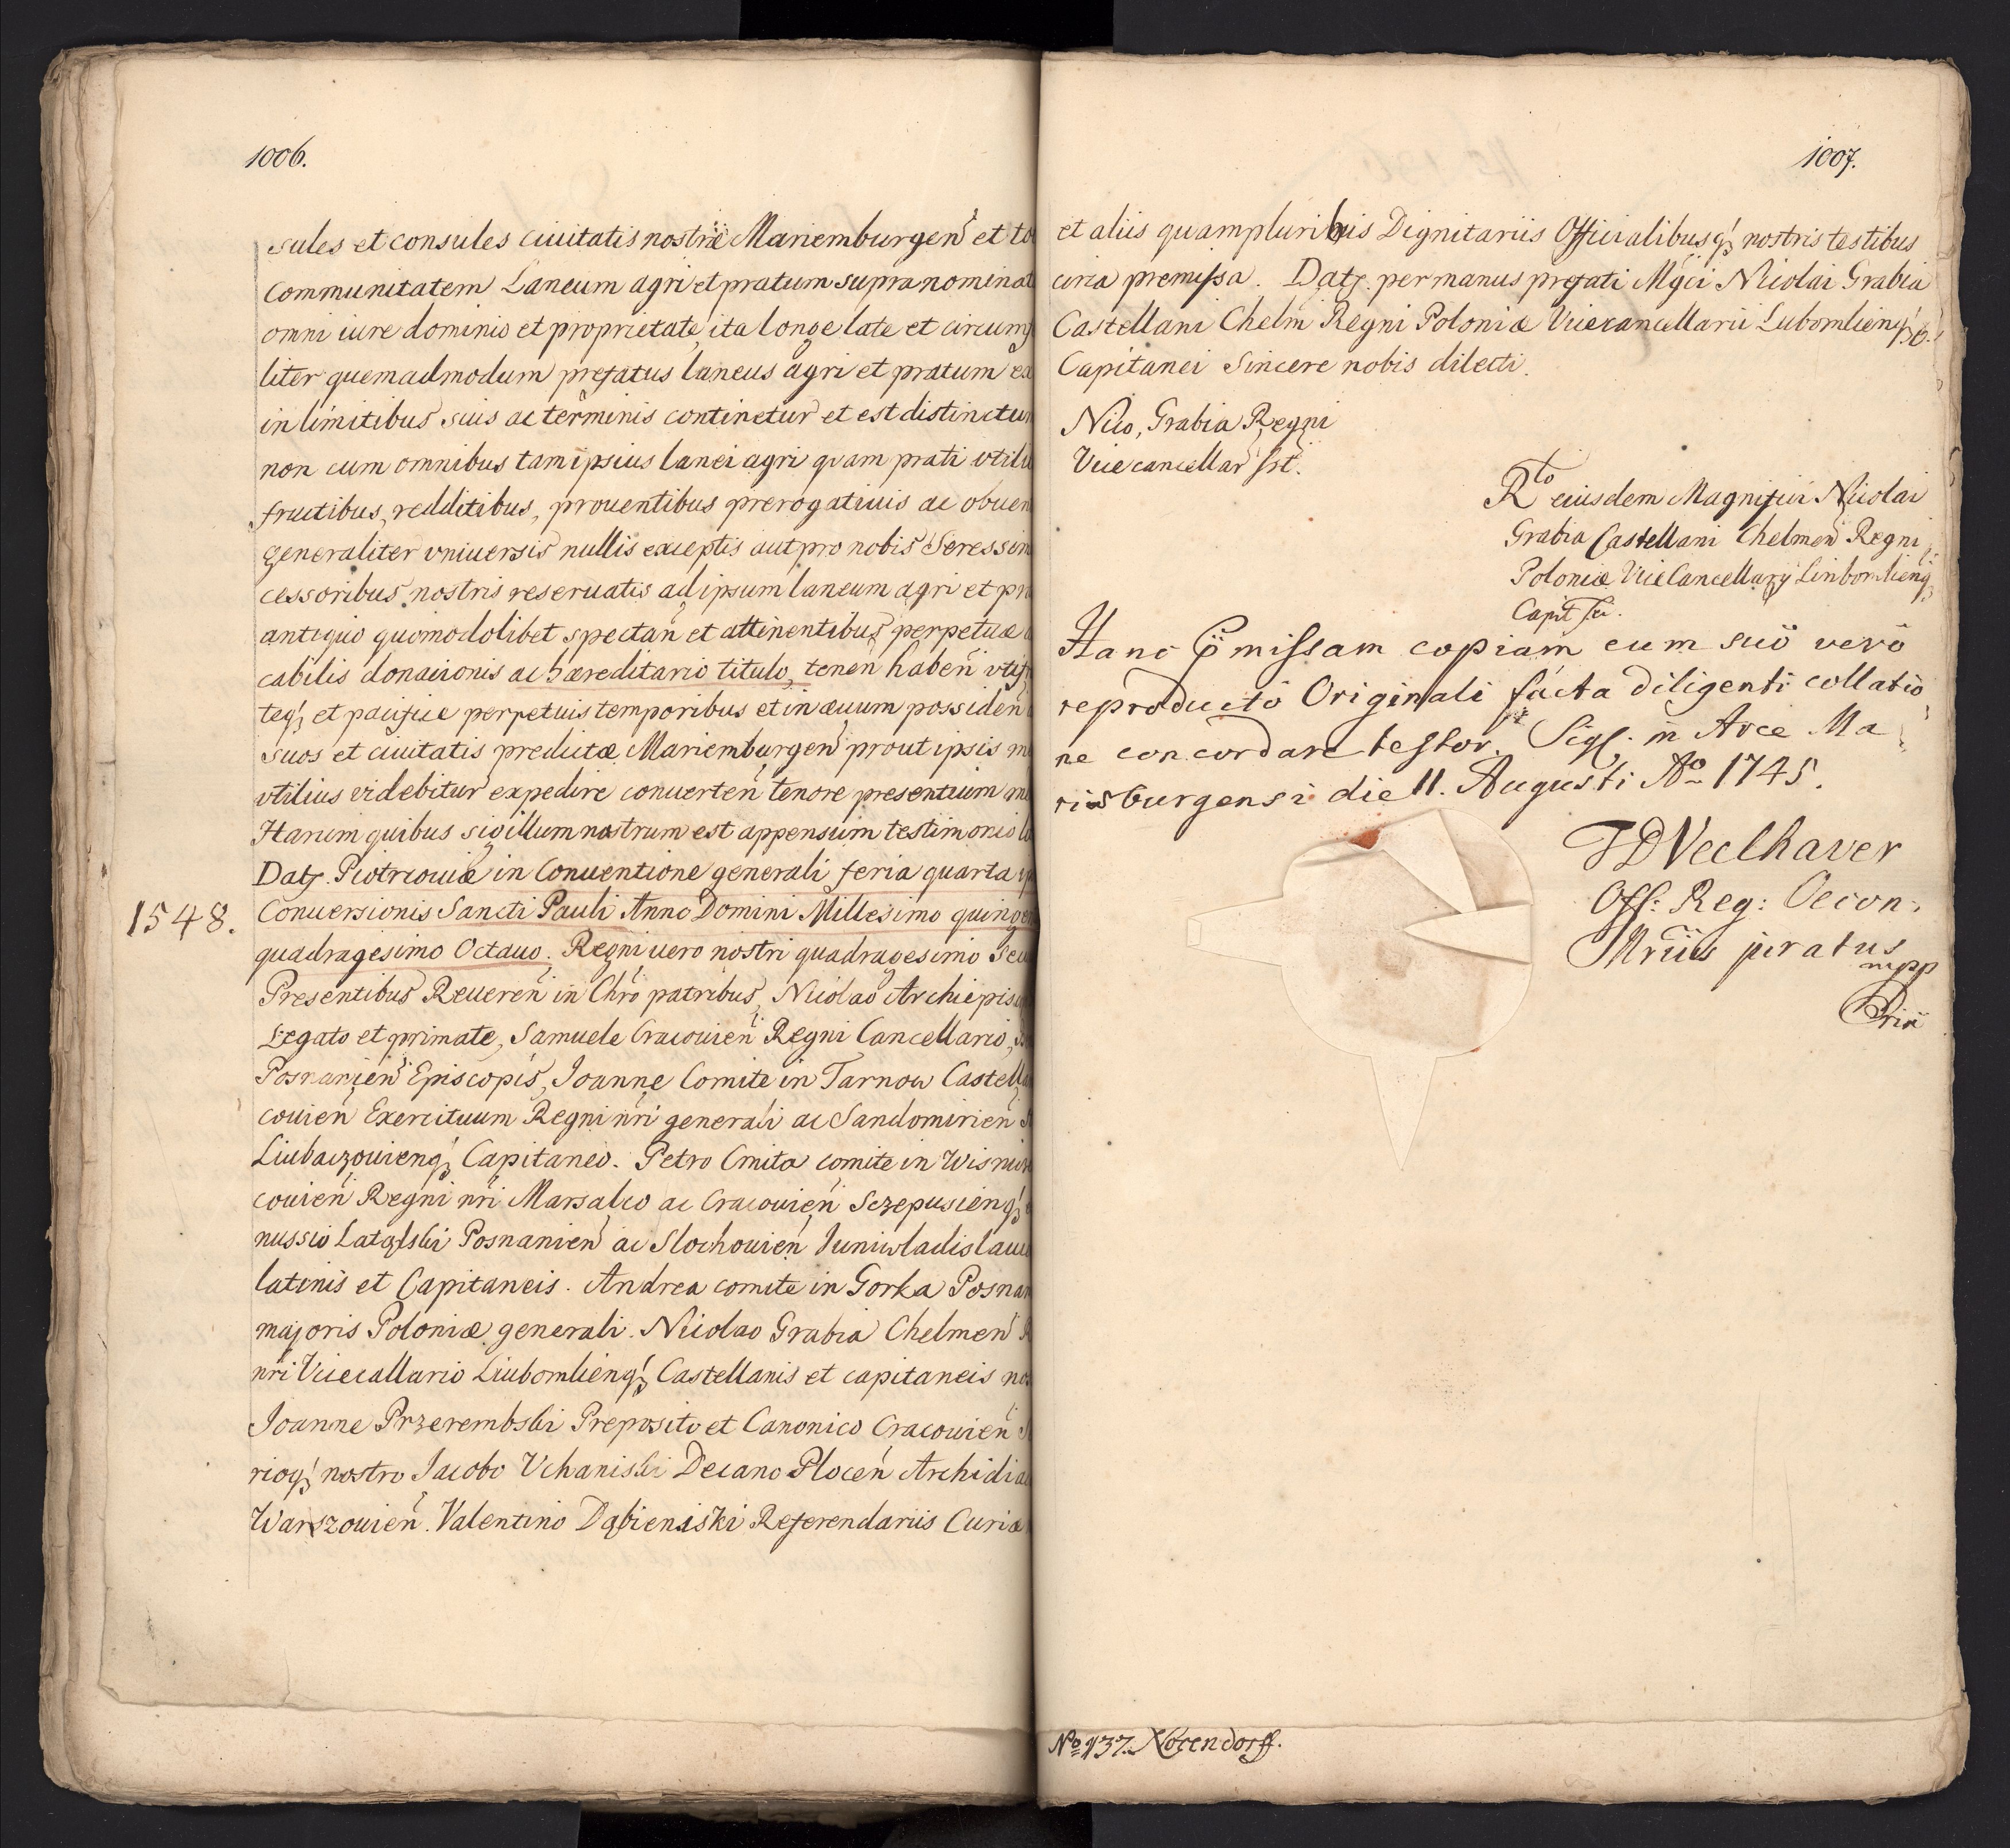 1006.
sules et consules ciuitatis nostræ Mariemburgen et to
Communitatem Laneum agri et pratum supra nominat
omni iure dominio et proprietate, ita longe late et circum
liter quemadmodum prefatus laneus agri et pratum ex
in limitibus suis ac terminis continetur et est distinctum
non cum omnibus tam ipsius lanei agri quam prati vtili
fructibus, redditibus, prouentibus prerogatiuis ac obuen
generaliter vniuersis nullis exceptis aut pro nobis
cessoribus nostris reseruatis ad ipsum laneum agri et pra
antiquo quomodolibet spectan et attinentibus perpetuæ
cabilis donacionis ac hæreditario titulo, tenen haben
teq3 et pacifice perpetuis temporibus et in æuum possiden
suos et ciuitatis predictæ Mariemburgen prout ipsis m
vtilius videbitur expedire conuerten tenore presentium me
Harum quibus sigillum nostrum est appensum testimonio
Dat3. Piotrcouiæ in Conuentione generali feria quarta
1548.
Conuersionis Sancti Pauli Anno Domini Millesimo quingen
quadragesimo Octauo. Regni uero nostri quadragesimo Secu
Presentibus Reueren in Chro patribus, Nicolao Archiepis
Legato et primate, Samuele Cracouien Regni Cancellario,
Posnanien Episcopis, Joanne Comite in Tarnow Castella
couien Exercituum Regni nri generali ac Sandomirien
Liubaczouienq3 Capitaneo. Petro Cmita comite in Wisnicz
couien Regni nri Marsalco ac Cracouien Sczepusienq3
nussio Latalski Posnanien ac Slochouien Juniwladislauie
latinis et Capitaneis. Andrea comite in Gorka Posnan
majoris Poloniæ generali. Nicolao Grabia Chelmen
nri Vicecallario Liubomlienq3 Castellanis et capitaneis nos
Joanne Przerembski Preposito et Canonico Cracouien
rioq3 nostro Jacobo Vchaniski Decano Plocen Archidia
Warszouien. Valentino Dąbieniski Referendariis Curiæ
1007.
et aliis quampluribus Dignitariis Officialibusq3 nostris testibus
circa premissa. Dat3. per manus prefati Mgci Nicolai Grabia
Castellani Chelm Regni Poloniæ Vicecancellarii Lubomlienq3
Capitanei Sincere nobis dilecti.
Nico, Grabia Regni
Vicecancellar sst.
Rto eiusdem Magnifici Nicolai
Grabia Castellani Chelmen Regni
Poloniæ ViceCancellarij Linbomlienq3
Capit
Hanc Pmissam copiam cum suo vero
reproducto Originali facta diligenti collatio
ne concordare testor. Sigl. in Arce Ma
riæburgensi die 11. Augusti Ao 1745.
JDVeclhaver
Off: Reg: Oecon:
juratus
mpp
No 137. Notzendorff.